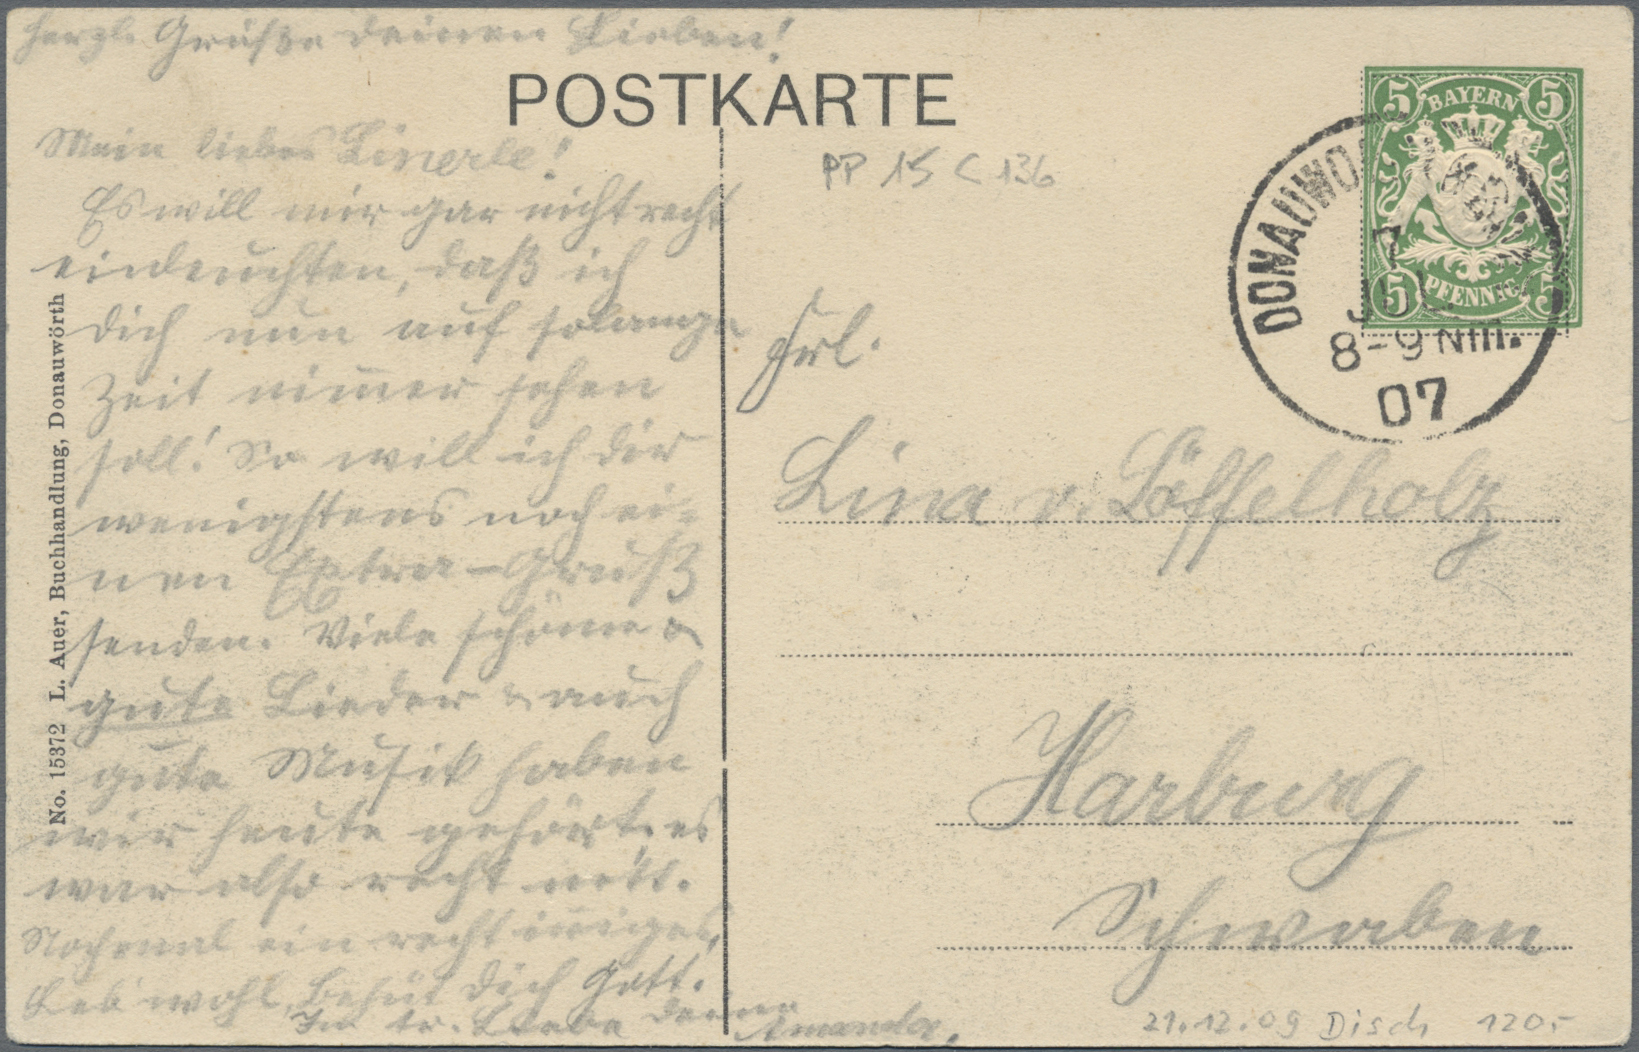 herzl. Grüße deinen Lieben!
POSTKARTE
Mein liebes Linerle!
Es will mir gar nicht recht
einleuchten, daß ich
dich nun auf solange
Zeit nimmer sehen
soll! So will ich dir
wenigstens noch ei-
nen Extra-Gruß
senden. Viele schöne &
gute Lieder & auch
gute Musik haben
wir heute gehört, es
war also recht nett.
Nochmal ein recht inniges,
Leb' wohl, behüt dich Gott.
In tr. Liebe deine Amanda.
No. 15372 L. Auer, Buchhandlung, Donauwörth
PP 15 C 136
5 BAYERN 5
5 PFENNIG 5
DONAUWÖ
7
JUL
8-9 Nm.
07
Frl.
Lina v. Löffelholz
Harburg
Schwaben
21.12.09 Disch 120,-